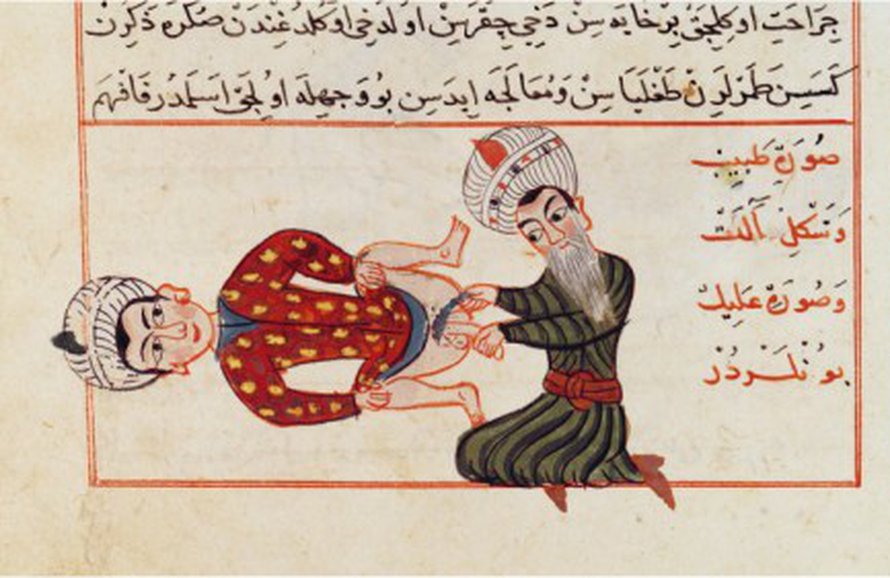 جراحت اوكلجق بر خايه سن دخي چقرسن اولدخي اوكلدغندن صكره ذكرن
كسسين طمرلرن طغلياسن ومعالجه ايدسن بو وجهله اولجق اسلمدر فافهم
صورة طبيب
وشكل آلت
وصورة عليل
بونلردر